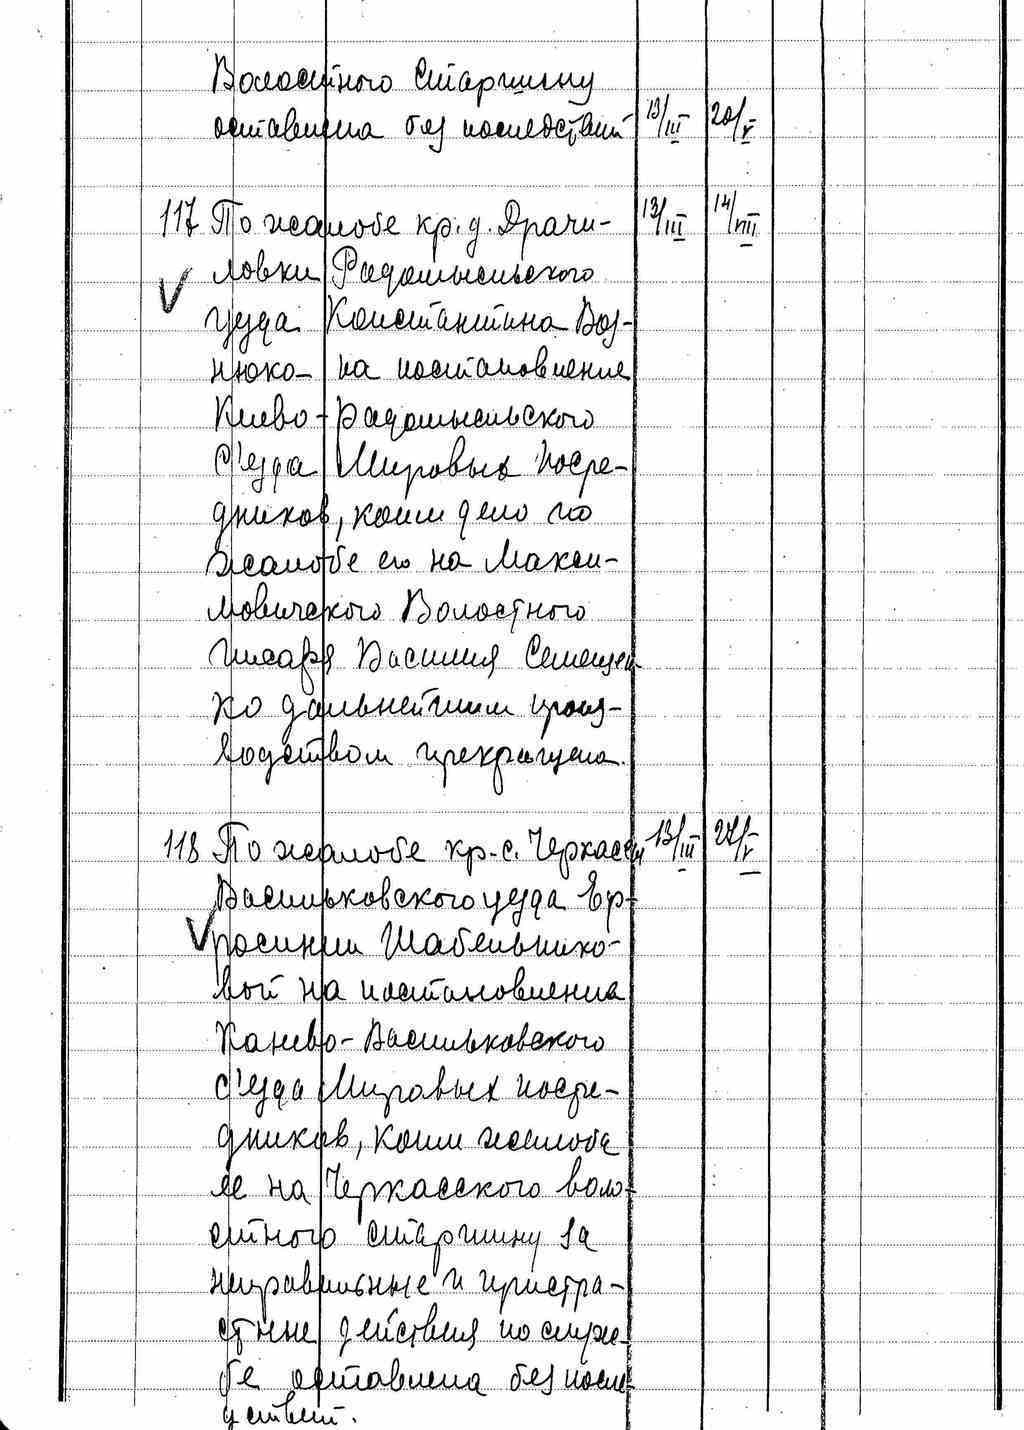 Волостного Старшину
оставлена без последствий 13/III 20/V
117 По жалобе кр. д. Драчи- 13/III 14/VIII
ловки Радомысльского
уезда Константина Воз-
нюко- на постановление
Киево-Радомысльского
с'езда Мировых посре-
дников, коим дело по
жалобе его на Макси-
мовичского Волостного
писаря Василия Семещен
ко дальнейшим произ-
водством прекращена.
118 По жалобе кр-с. Черкассы 13/III 27/V
Васильковского уезда Ев-
росинии Шабельнико-
вой на постановления
Канево-Васильковского
с'езда Мировых посре-
дников, коим жалоба
ее на Черкасского воло-
стного старшину за
неправильные и пристра-
стные действия по служ-
бе оставлена без после-
дствий.